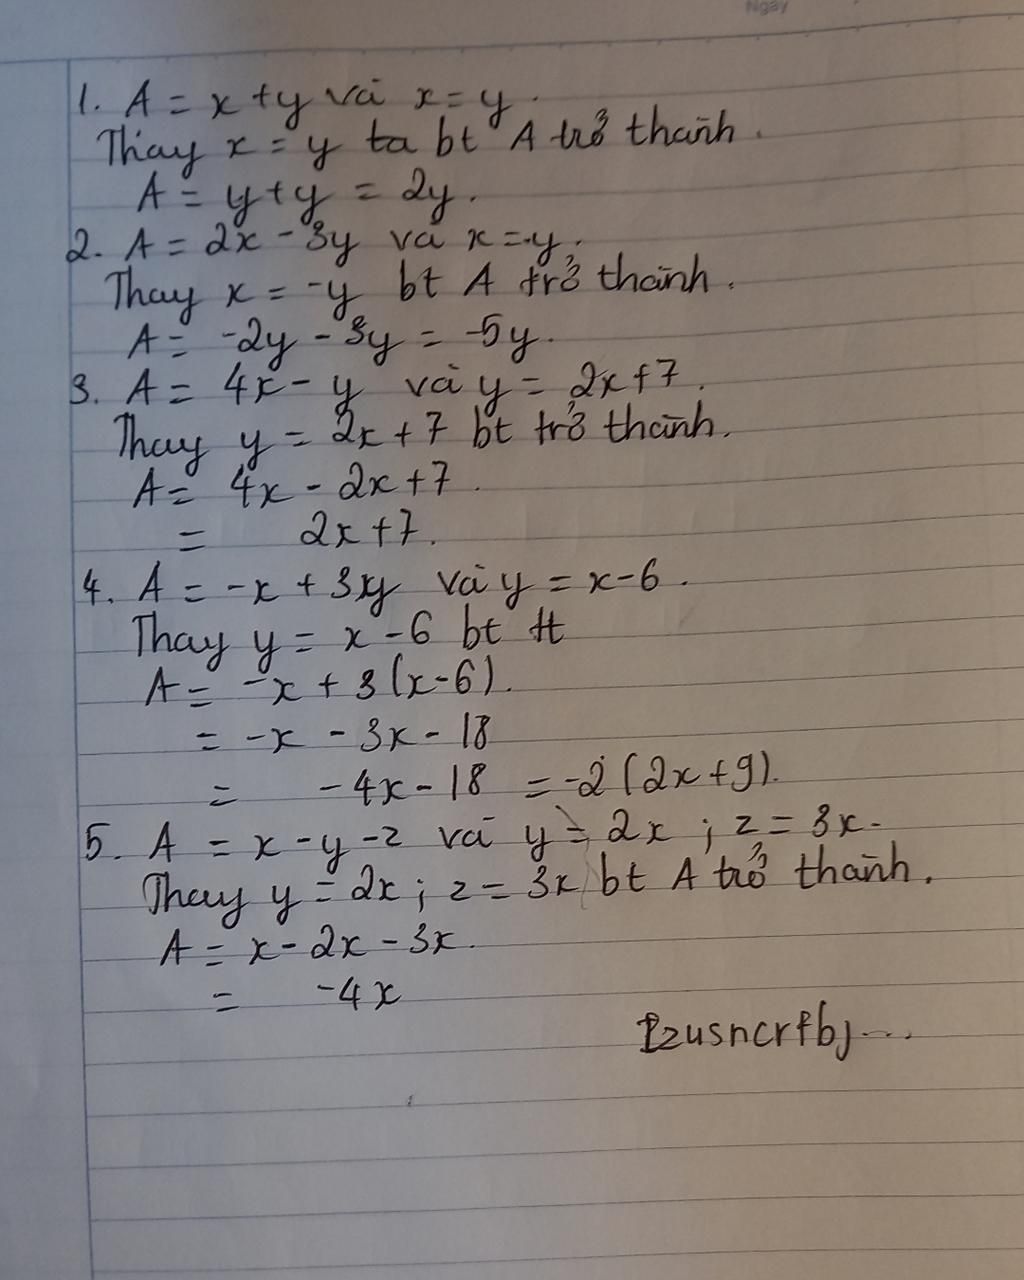 Ngày
1. A = x + y và x = y.
Thay x = y ta bt A trở thành.
A = y + y = 2y.
2. A = 2x - 3y và x = -y.
Thay x = -y bt A trở thành.
A = -2y - 3y = -5y.
3. A = 4x - y và y = 2x + 7.
Thay y = 2x + 7 bt trở thành.
A = 4x - 2x + 7.
= 2x + 7.
4. A = -x + 3y và y = x - 6.
Thay y = x - 6 bt tt
A = -x + 3(x - 6).
= -x - 3x - 18
= -4x - 18 = -2(2x + 9).
5. A = x - y - z và y = 2x ; z = 3x.
Thay y = 2x ; z = 3x bt A trở thành.
A = x - 2x - 3x.
= -4x